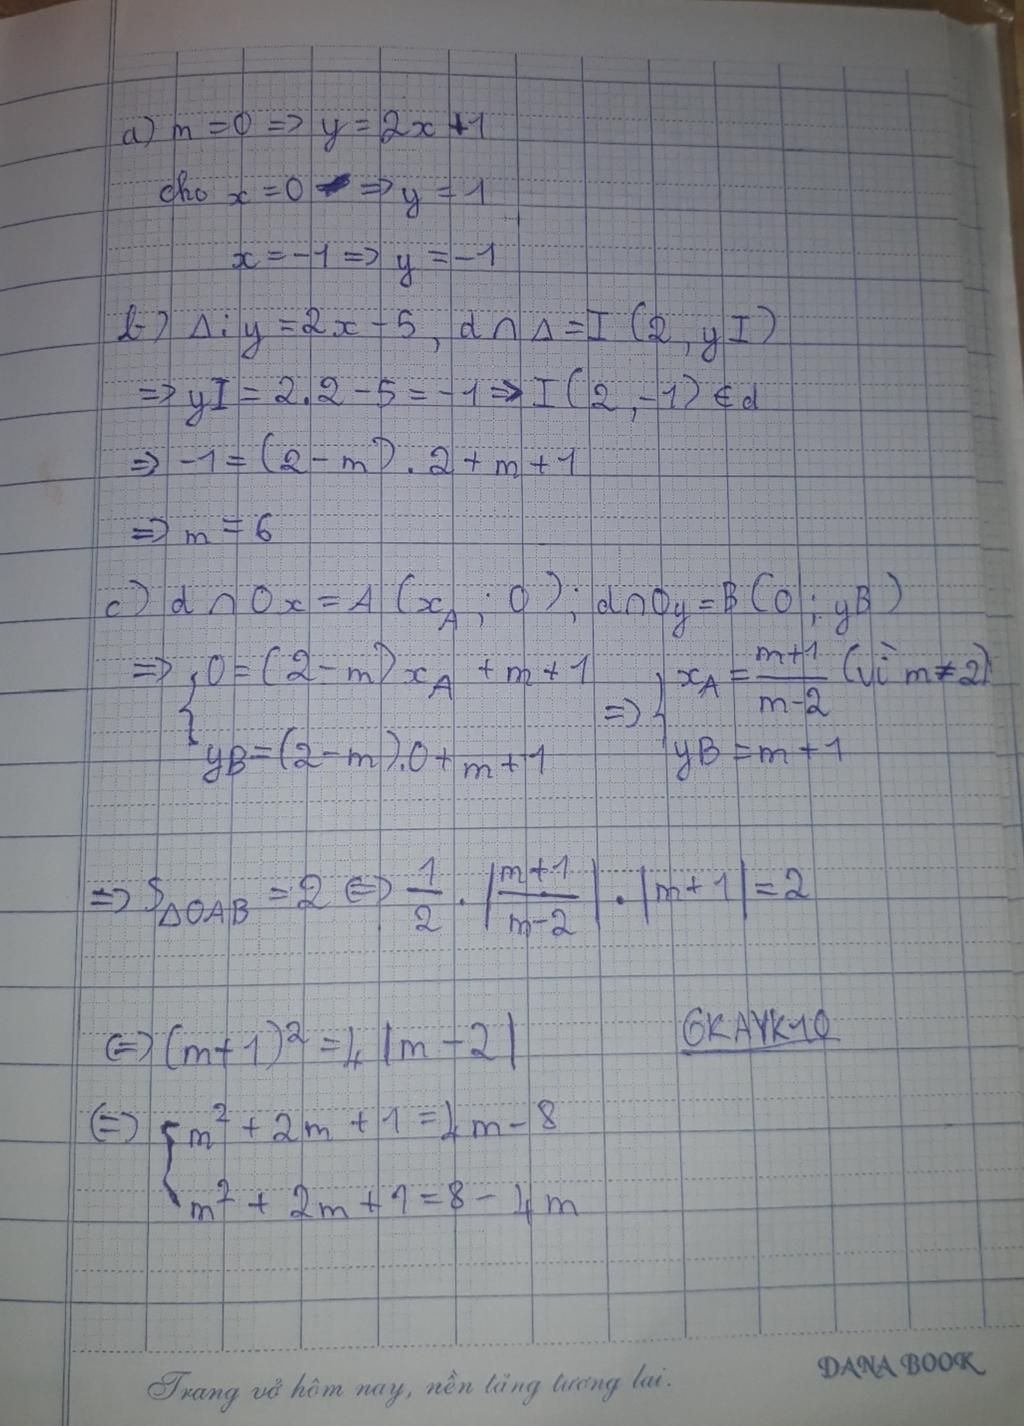 a) m = 0 => y = 2x + 1
cho x = 0 => y = 1
x = -1 => y = -1
b) Δ: y = 2x - 5, d ∩ Δ = I (2, yI)
=> yI = 2.2 - 5 = -1 => I (2, -1) ∈ d
=> -1 = (2 - m) . 2 + m + 1
=> m = 6
c) d ∩ Ox = A (x_A ; 0); d ∩ Oy = B (0; yB)
=> { 0 = (2 - m) x_A + m + 1 => { x_A = (m+1)/(m-2) (vì m ≠ 2)
yB = (2 - m).0 + m + 1 yB = m + 1
=> S_ΔOAB = 2 <=> 1/2 . |(m+1)/(m-2)| . |m + 1| = 2
<=> (m + 1)² = 4 |m - 2|
GKAYK10
<=> { m² + 2m + 1 = 4m - 8
m² + 2m + 1 = 8 - 4m
Trang vở hôm nay, nền tảng tương lai.
DANA BOOK